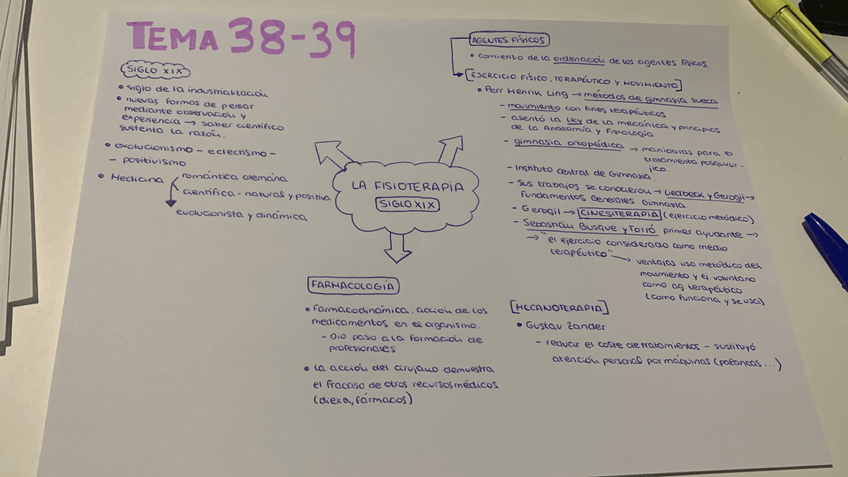 TEMA 38-39
SIGLO XIX
• siglo de la industrialización
• nuevas formas de pensar
mediante observación y
experiencia → saber científico
sustenta la razón.
• evolucionismo - eclectismo -
- positivismo
• Medicina
romántica alemana
científica - natural y positiva
evolucionista y dinámica
LA FISIOTERAPIA
SIGLO XIX
FARMACOLOGÍA
• Farmacodinámica: acción de los
medicamentos en el organismo.
- Dio paso a la formación de
profesionales
• la acción del cirujano demuestra
el fracaso de otros recursos médicos
(dieta, fármacos)
AGENTES FÍSICOS
• comienzo de la ordenación de los agentes físicos
[EJERCICIO FÍSICO, TERAPÉUTICO Y MOVIMIENTO]
• Perr Henrik Ling → métodos de gimnasia sueca
- movimiento con fines terapéuticos
- asentó la Ley de la mecánica y principios
de la anatomía y fisiología
- gimnasia ortopédica → maniobras para el
tratamiento posquirúr-
gico.
- Instituto central de Gimnasia.
- Sus trabajos se conocieron → Liedbeck y Georgii →
Fundamentos Generales Gimnasia.
- Georgii → CINESITERAPIA (ejercicio metódico)
- Sebastián Busqué y Torró primer ayudante →
→ "el ejercicio considerado como medio
terapéutico" → ventajas uso metódico del
movimiento y ej. voluntario
como ag terapéutico
(como funciona y se usa)
[MECANOTERAPIA]
• Gustav Zander
- reducir el coste de tratamientos - sustituyó
atención personal por máquinas (palancas...)